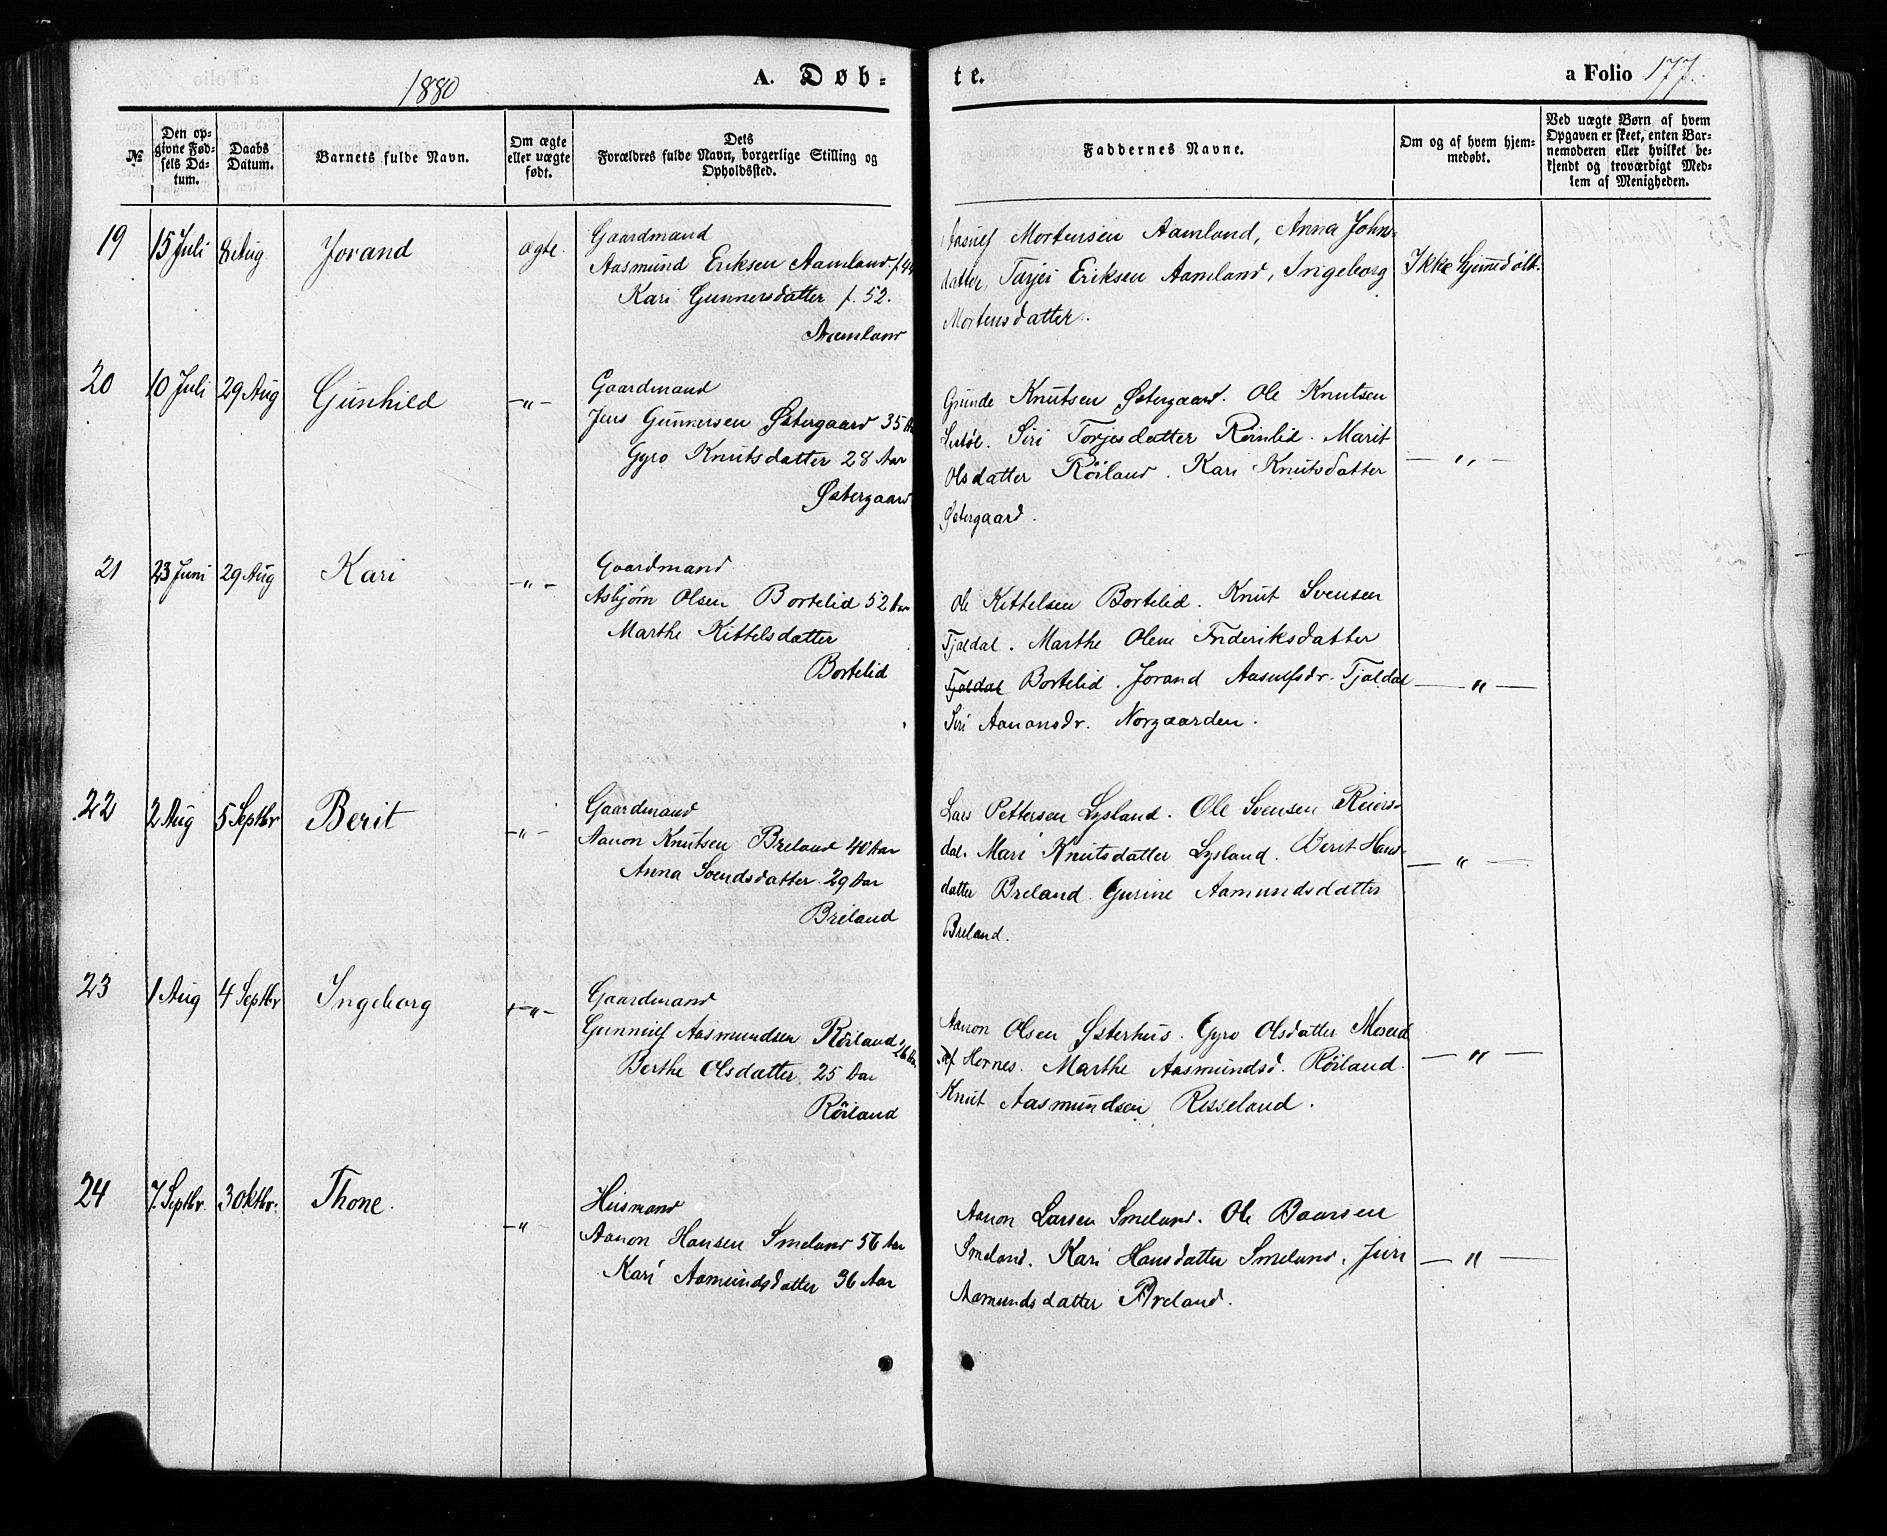 1880
A. Døb-
te.
a Folio 177.
№
Den op-
givne Fød-
sels Da-
tum.
Daabs
Datum.
Barnets fulde Navn.
Om ægte
eller uægte
født.
Dets
Forældres fulde Navn, borgerlige Stilling og
Opholdssted.
Faddernes Navne.
Om og af hvem hjem-
medøbt.
Ved uægte Børn af hvem
Opgaven er skeet, enten Bar-
nemoderen eller hvilket be-
kjendt og troværdigt Med-
lem af Menigheden.
19 15 Juli 8 Aug Jorand ægte
Gaardmand
Aasmund Eriksen Aamland f. 44
Kari Gunnersdatter f. 52.
Aamland
Aasulf Mortensen Aamland, Anna Johns-
datter, Tarjei Eriksen Aamland, Ingeborg
Mortensdatter.
Ikke hjemmedøbt.
20 10 Juli 29 Aug Gunhild -"-
Gaardmand
Jens Gunnersen Østergaard 35 Aar
Gyro Knutsdatter 28 Aar
Østergaard
Grunde Knutsen Østergaard. Ole Knutsen
Siri Torjesdatter Reinlid. Marit
Olsdatter Röiland. Kari Knutsdatter
Østergaard.
-"-
21 23 Juni 29 Aug Kari -"-
Gaardmand
Asbjørn Olsen Bortelid 52 Aar
Marthe Kittelsdatter
Bortelid
Ole Kittelsen Bortelid. Knut Svensen
Tjaldal. Marthe Olene Frideriksdatter
Tjaldal Bortelid. Jorand Aasulfsdr. Tjaldal
Siri Aanonsdr. Norgaarden.
-"-
22 2 Aug 5 Septbr Berit -"-
Gaardmand
Aanon Knutsen Breland 40 Aar
Anna Svendsdatter 29 Aar
Breland
Lars Pettersen Lysland. Ole Svensen Reiers-
dal. Mari Knutsdatter Lysland. Berit Hans-
datter Breland. Gurine Aamundsdatter
Breland.
-"-
23 1 Aug 4 Septbr Ingeborg -"-
Gaardmand
Gunnulf Aasmundsen Röiland 26 Aar
Berthe Olsdatter 25 Aar
Röiland
Aanon Olsen Østerhus. Gyro Olsdatter
af Hornes. Marthe Aasmundsd. Röiland.
Knut Aasmundsen Risseland.
-"-
24 7. Septbr. 3 Oktbr. Thone. -"-
Husmand
Aanon Hansen Smeland 56 Aar
Kari Aamundsdatter 36 Aar
Aanon Larsen Smeland. Ole Baarsen
Smeland. Kari Hansdatter Smeland. Juri
Aamundsdatter Breland.
-"-